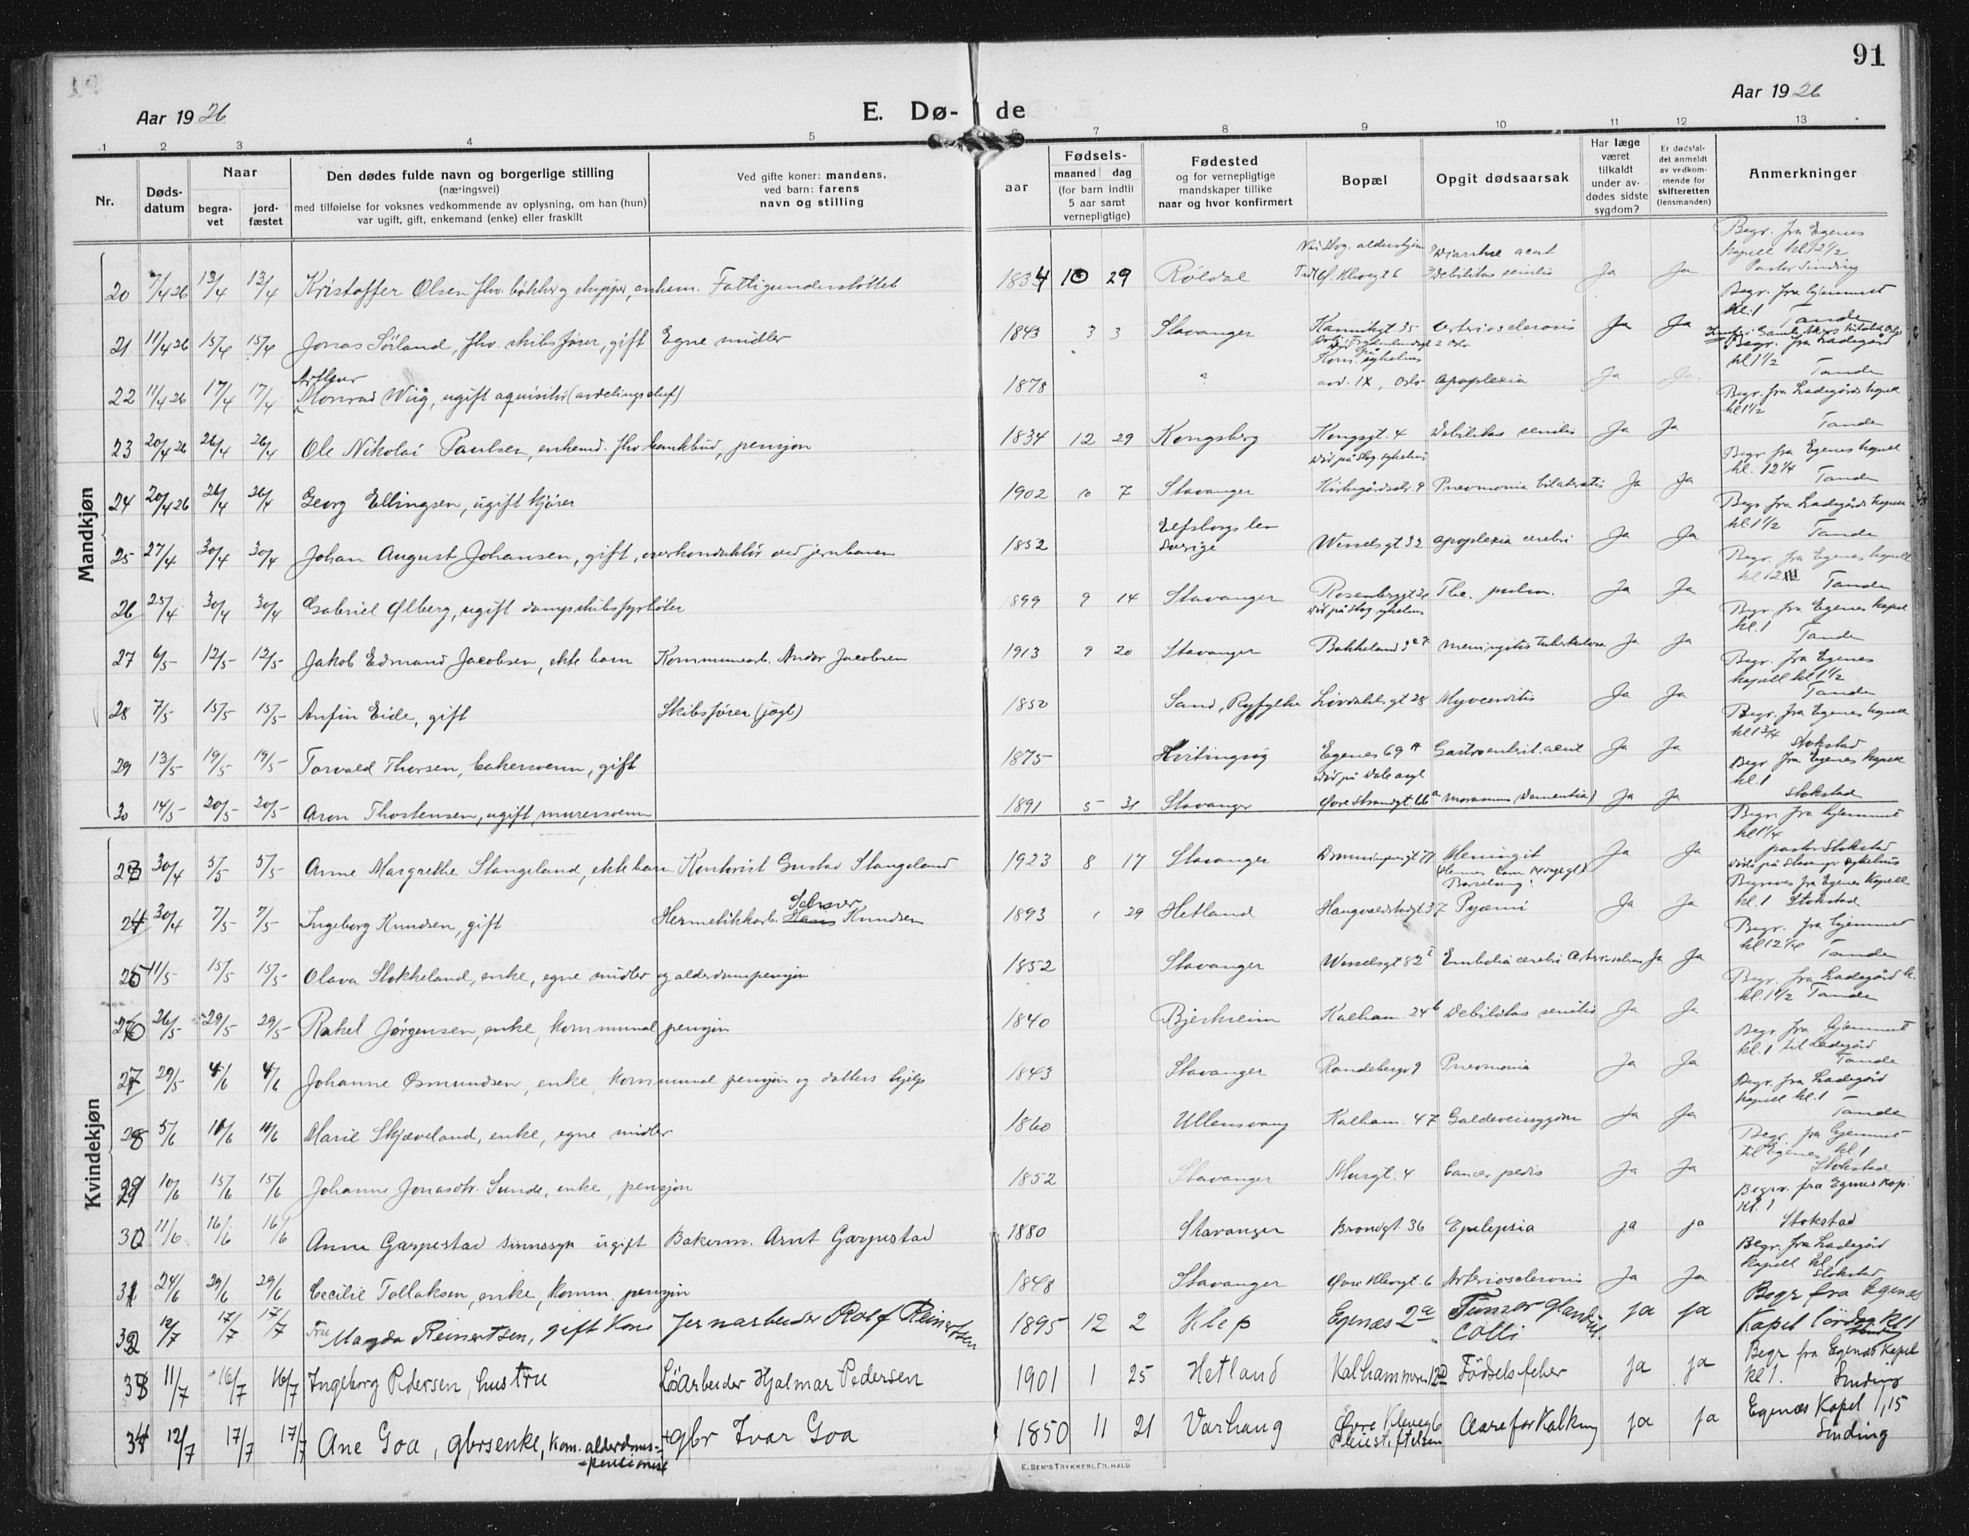 91
Aar 1926
E. Dø-
de
Aar 1926
1 2 3 4 5 6 7 8 9 10 11 12 13
Nr.
Døds-datum
Naar
begra-vet
jord-fæstet
Den dødes fulde navn og borgerlige stilling
(næringsvei)
med tilføielse for voksnes vedkommende av oplysning, om han (hun)
var ugift, gift, enkemand (enke) eller fraskilt
Ved gifte koner: mandens,
ved barn: farens
navn og stilling
aar
Fødsels-
maaned dag
(for barn indtil
5 aar samt
vernepligtige)
Fødested
og for vernepligtige
mandskaper tillike
naar og hvor konfirmert
Bopæl
Opgit dødsaarsak
Har læge
været
tilkaldt
under av-
dødes sidste
sygdom?
Er dødsfal-
det anmeldt
av vedkom-
mende for
skifteretten
(lensmanden)
Anmerkninger
Mandkjøn
20 7/4 26 13/4 13/4 Kristoffer Olsen fhv. enkem. Fattigunderstøttet 1834 10 29 Røldal Debilitas senilis Ja Ja Begr. fra Egenes kapell kl 12 1/2 Pastor Sinding
21 11/4 26 15/4 15/4 Jonas Søiland, fhv. skibsfører, gift Egne midler 1843 3 3 Stavanger Kannikgt 35 Arteriosclerosis Ja Ja Begr. fra hjemmet kl. 1 Tande
22 11/4 26 17/4 17/4 Arthur Monrad Wiig, ugift aquisitør 1878 ? avd. IX, Oslo Apoplexia Ja Ja Begr. fra Ladegård kl 1 1/2 Tande
23 20/4 26 26/4 26/4 Ole Nikolai Paulsen, enkemd. fhv. bankbud, pensjon 1834 12 29 Kongsberg Kongsgt. 4 Debilitas senilis Ja Ja Begr. fra Ladegårds kapell kl 1 1/2 Tande
24 20/4 26 26/4 26/4 Georg Ellingsen, ugift kjører 1902 10 7 Stavanger Død på Stvg. sykehus Kirkegårdsstr. 9 Pneumonia bilateralis Ja Ja Begr. fra Egenes kapell kl. 12 1/4 Tande
25 27/4 30/4 30/4 Johan August Johansen, gift, overkonduktør ved jernbanen 1852 Elfsborgs len Sverige Wesselsgt 32 Apoplexia cerebri Ja Ja Begr. fra Ladegårds kapell kl. 1 1/2 Tande
26 25/4 30/4 30/4 Gabriel Ølberg, ugift dampskibsfyrbøter 1899 9 14 Stavanger Rosenberggt 24 Død på Stvg. sykehus Tbc. pulm. Ja Ja Begr. fra Egenes kapell kl 12 Tande
27 6/5 12/5 12/5 Jakob Edmand Jacobsen, ekte barn Kommunearb. Andor Jacobsen 1913 9 20 Stavanger Bakkeland Meningitis tuberkulosa Ja Ja Begr. fra Egenes kapel kl. 1 Tande
28 7/5 15/5 15/5 Anfin Eide, gift Skibsfører (jagt) 1852 Sand, Ryfylke Løvdahlsgt 28 Myocarditis Ja Ja Begr. fra Egenes kapell kl 1 1/2 Tande
29 13/5 19/5 19/5 Torvald Thorsen, bakersvenn, gift 1875 Hvitingsøy Egenes 69 a Gastroenterit. acut Ja Ja Begr. fra Egenes kapell kl 1 3/4 Stokstad
30 14/5 20/5 20/5 Aron Thorstensen, ugift, murersvenn 1891 5 31 Stavanger Død på Dale asyl Øvre Strandgt. 66 a Marasmus (Dementia) Ja Ja Begr. fra Egenes kapell kl. 1 Stokstad
Kvindekjøn
23 30/4 5/5 5/5 Anne Margrethe Stangeland, ekte barn Kontorist Gustav Stangeland 1923 8 17 Stavanger Dronningensgt 77 Meningit Ja Ja Begr. fra hjemmet kl 1 1/4 pastor Stokstad
24 30/4 7/5 7/5 Ingeborg Knudsen, gift Hermetikkarb. Knudsen 1893 1 29 Hetland Haugvaldstadgt 37 Pyæmi Ja Ja Døde på Stavanger sykehus Begraves fra Egenes Kapell kl. 1 Stokstad
25 11/5 15/5 15/5 Olava Stokkeland, enke, egne midler og alderdomspensjon 1852 Stavanger Wesselsgt 82 Embolia cerebri Ja Ja Begr. fra hjemmet kl 12 1/4 Tande
26 26/5 29/5 29/5 Rakel Jørgensen, enke, kommunal pensjon 1840 Bjerkreim Kalham. 24 b Debilitas senilis Ja Ja Begr. fra Ladegård k. kl. 1 1/2 Tande
27 29/5 4/6 4/6 Johanne Osmundsen, enke, kommunal pensjon og datters hjelp 1843 Stavanger Randebergv 9 Pneumonia Ja Ja Begr. fra Hjemmet kl. 1 til Ladegård Tande
28 5/6 10/6 10/6 Marie Skjæveland, enke, egne midler 1860 Ullensvang Kalham. 47 Galdeveissygdom Ja Ja Begr. fra Ladegård kapell kl. 1 Tande
29 10/6 15/6 15/6 Johanne Jonasdtr. Sunde, enke, pensjon 1852 Stavanger Murgt. 4 Cancer pedis Ja Ja Begr. fra Hjemmet til Egenes kl 1 Stokstad
30 11/6 16/6 16/6 Anna Garpestad sinnssyk ugift Bakerm. Arnt Garpestad 1880 Stavanger Brøndgt. 36 Epilepsia ja ja Begrav. fra Egenes kap. kl. 1 Stokstad
31 24/6 29/6 29/6 Cecilie Tollaksen, enke, komm. pensjon 1848 Stavanger Øvre Klevgt. 6 Arteriosclerosis Ja Ja Begr. fra Ladegård kapell kl. 1 Stokstad
32 12/7 17/7 17/7 Fru Magda Reinertsen, gift Kone Jernarbeider Rolf Reinertsen 1895 12 2 Klep Egenæs 2a Tumor glandul. Colli ja ja Begr fra Egenæs Kapel lördag kl 1 Sinding
33 11/7 16/7 16/7 Ingeborg Pedersen, hustru Løsarbeider Hjalmar Pedersen 1901 1 25 Hetland Kalhammeren 12 Födselsfeber ja ja Begr fra Egenæs Kapel kl 1. Sinding
34 12/7 17/7 17/7 Ane Goa, gbrsenke, Kom. alderdoms-pensionist gbr Ivar Goa 1850 11 21 Varhaug Øvre Kleveg 6 Pleiestiftelsen Aareforkalkning ja ja Egenæs Kapel 1,15 Sinding
E. SEM'S TRYKKERI, FR.HALD